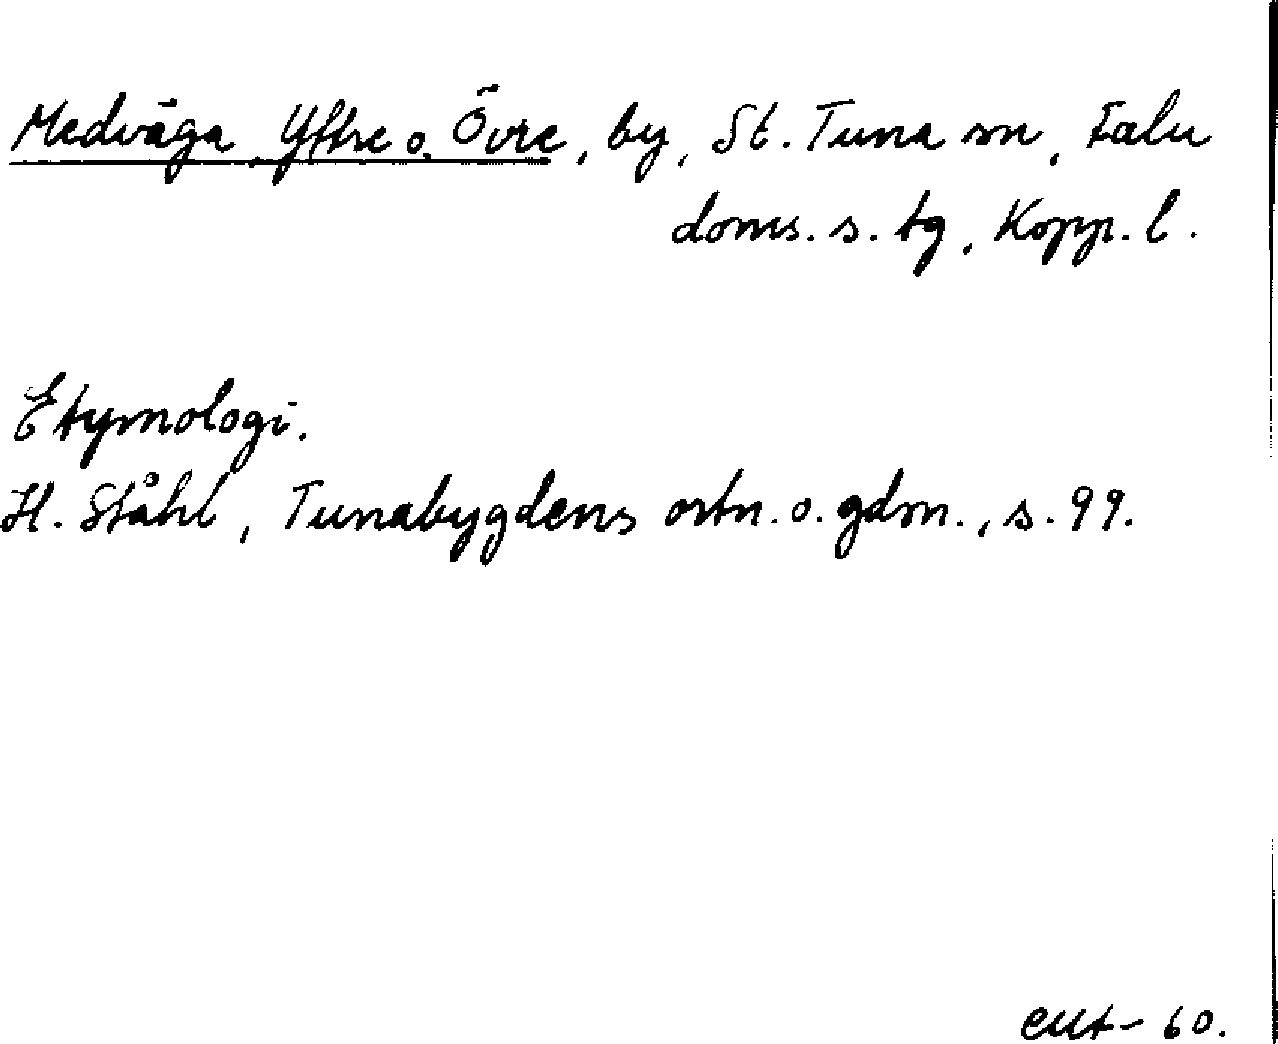 Medväga, Yttre o. Övre, by, St. Tuna sn, Falu
doms. s. tg, Kopp. l.
Etymologi.
H. Ståhl, Tunabygdens ortn. o. gdsn., s. 99.
60.